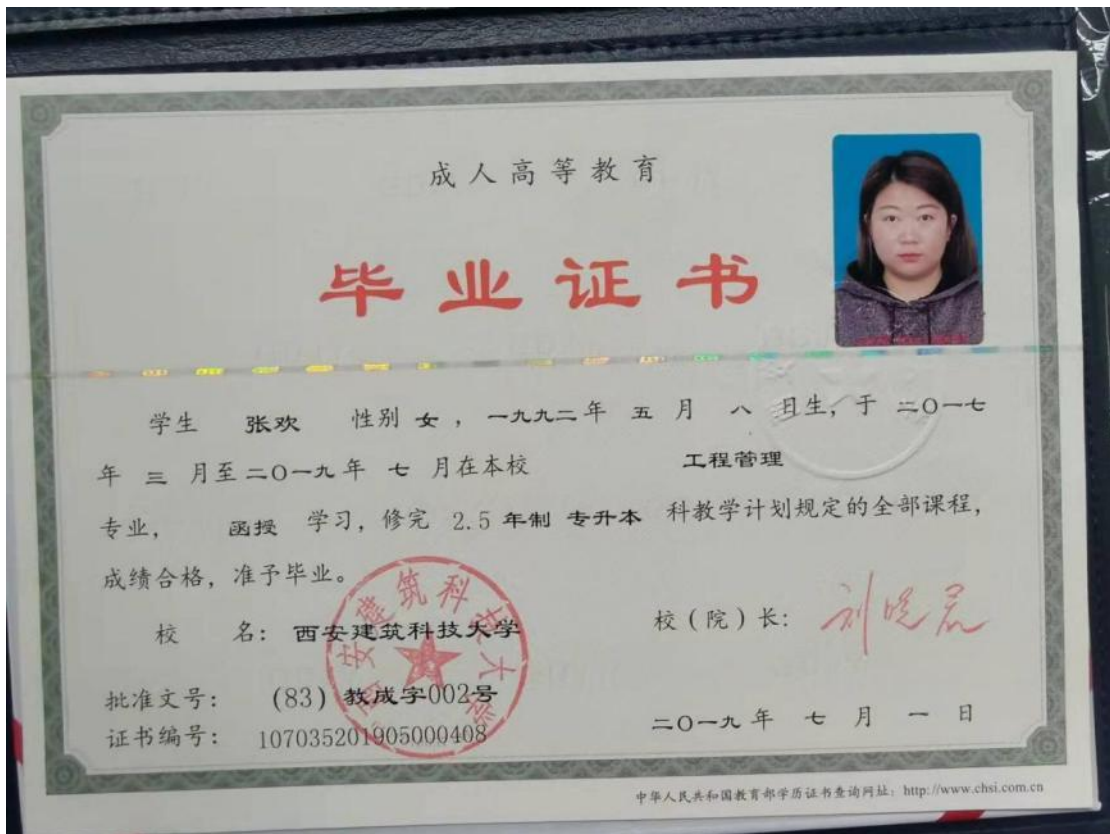 成人高等教育
毕业证书
学生 张欢 性别 女 ，一九九二年 五 月 八 日生，于 二〇一七
年 三 月至二〇一九年 七 月在本校 工程管理
专业， 函授 学习，修完 2.5 年制 专升本 科教学计划规定的全部课程，
成绩合格，准予毕业。
校 名：西安建筑科技大学 校（院）长：刘晓君
西安建筑科技大学
批准文号：（83）教成字002号
证书编号：107035201905000408 二〇一九年 七 月 一 日
中华人民共和国教育部学历证书查询网址：http://www.chsi.com.cn